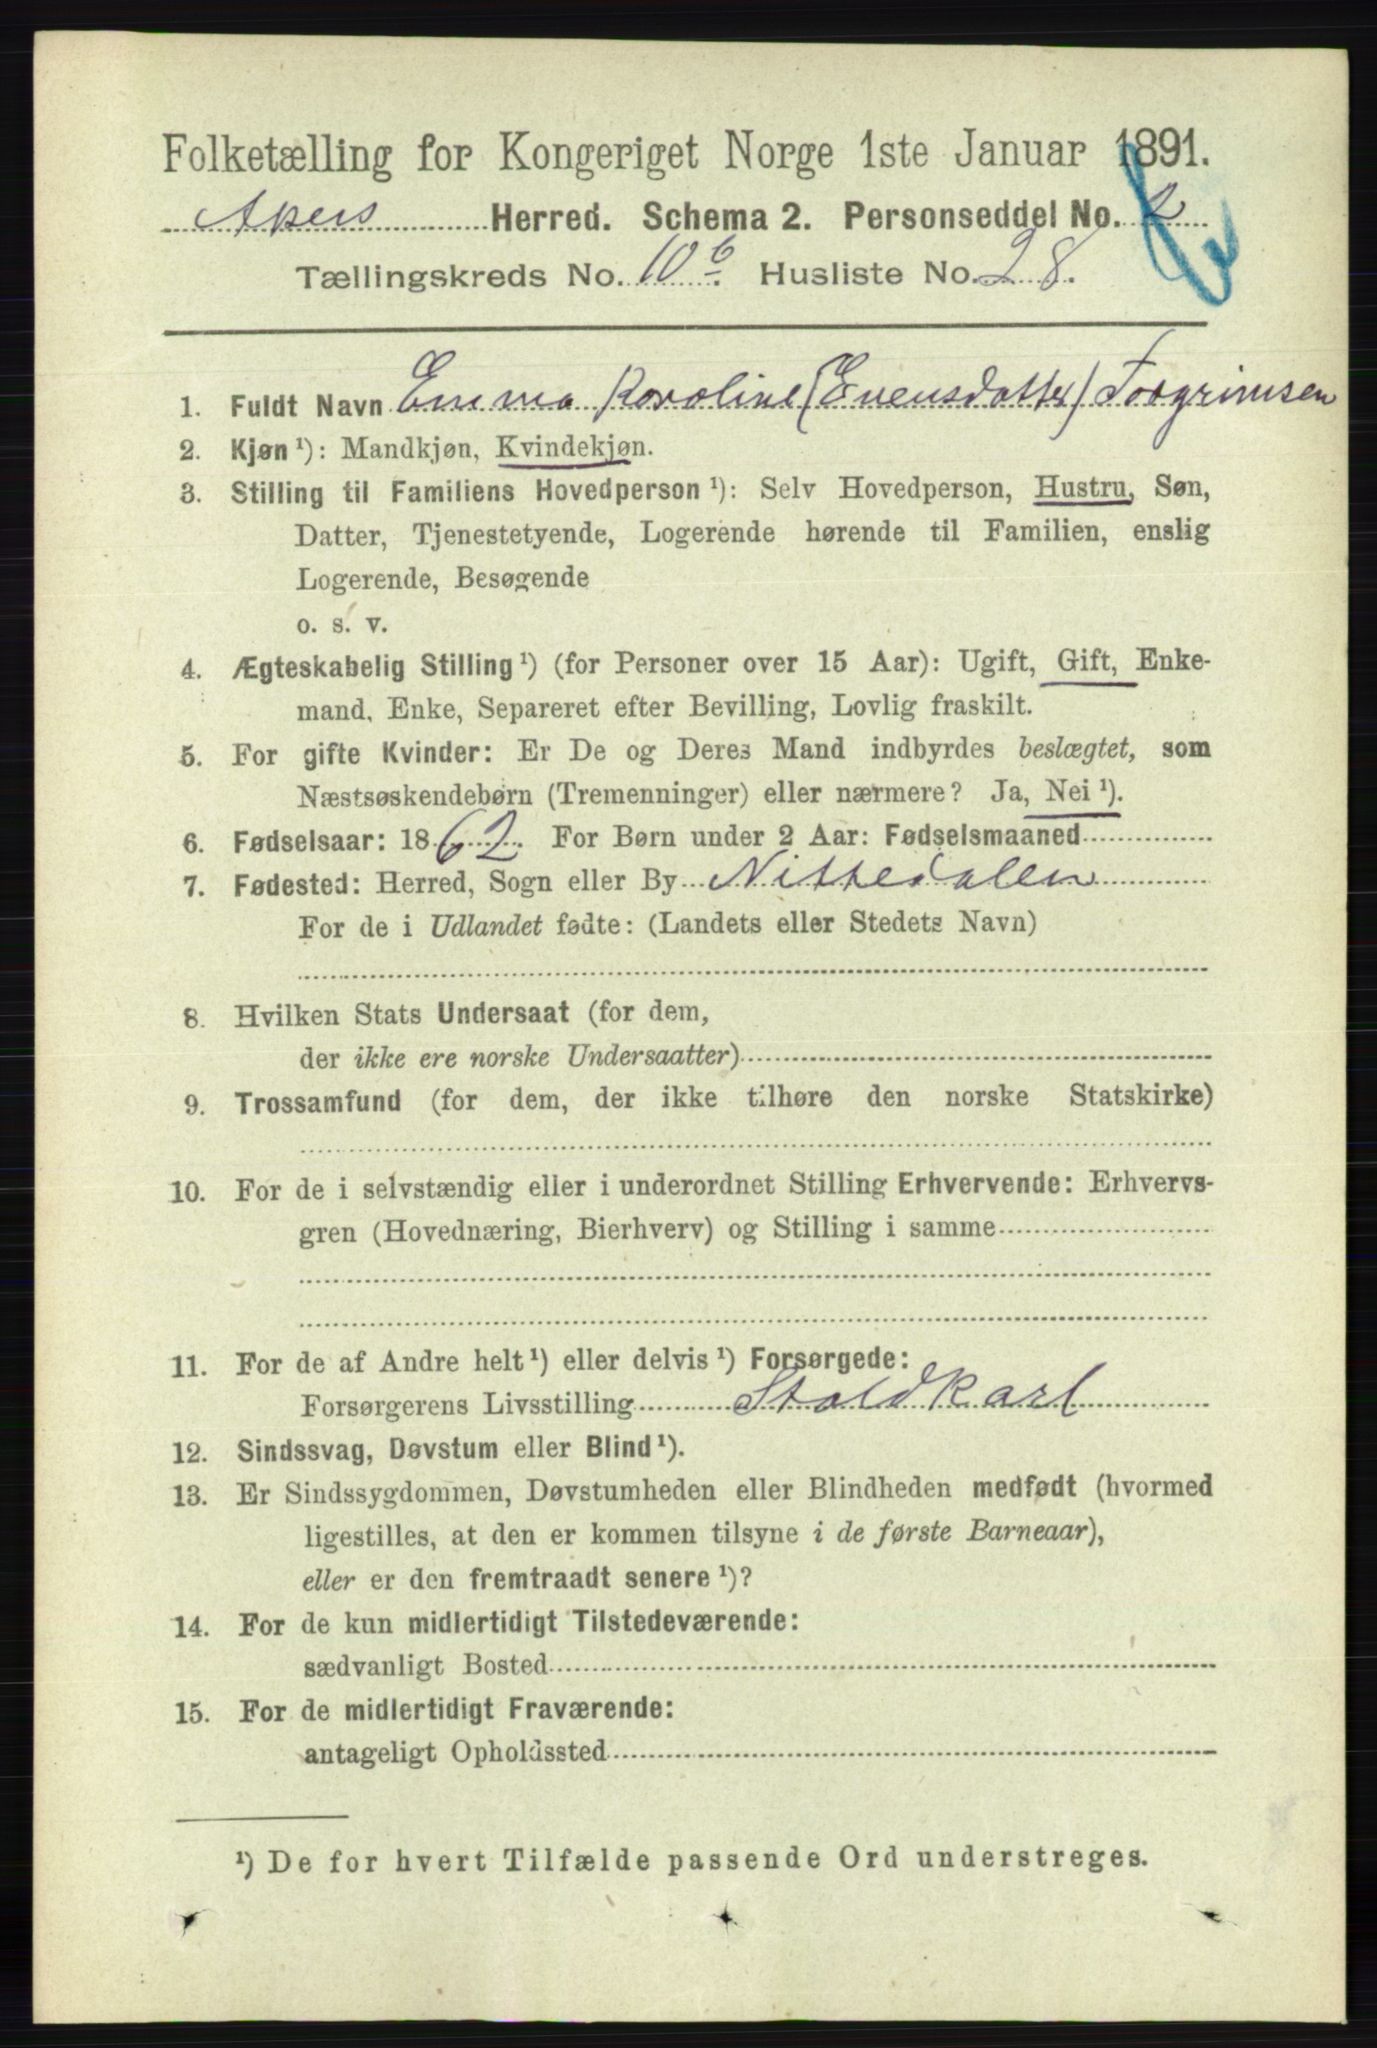 Folketælling for Kongeriget Norge 1ste Januar 1891.
Akers Herred. Schema 2. Personseddel No. 2
Tællingskreds No. 10 b. Husliste No. 28.
1. Fuldt Navn Emma Karoline (Evensdatter) Torgrimsen
2. Kjøn ¹): Mandkjøn, Kvindekjøn.
3. Stilling til Familiens Hovedperson ¹): Selv Hovedperson, Hustru, Søn,
Datter, Tjenestetyende, Logerende hørende til Familien, enslig
Logerende, Besøgende
o. s. v.
4. Ægteskabelig Stilling ¹) (for Personer over 15 Aar): Ugift, Gift, Enke-
mand, Enke, Separeret efter Bevilling, Lovlig fraskilt.
5. For gifte Kvinder: Er De og Deres Mand indbyrdes beslægtet, som
Næstsøskendebørn (Tremenninger) eller nærmere? Ja, Nei ¹).
6. Fødselsaar: 1862. For Børn under 2 Aar: Fødselsmaaned
7. Fødested: Herred, Sogn eller By Nittedalen
For de i Udlandet fødte: (Landets eller Stedets Navn)
8. Hvilken Stats Undersaat (for dem,
der ikke ere norske Undersaatter)
9. Trossamfund (for dem, der ikke tilhøre den norske Statskirke)
10. For de i selvstændig eller i underordnet Stilling Erhvervende: Erhvervs-
gren (Hovednæring, Bierhverv) og Stilling i samme
11. For de af Andre helt ¹) eller delvis ¹) Forsørgede:
Forsørgerens Livsstilling Staldkarl
12. Sindssvag, Døvstum eller Blind ¹).
13. Er Sindssygdommen, Døvstumheden eller Blindheden medfødt (hvormed
ligestilles, at den er kommen tilsyne i de første Barneaar),
eller er den fremtraadt senere ¹)?
14. For de kun midlertidigt Tilstedeværende:
sædvanligt Bosted
15. For de midlertidigt Fraværende:
antageligt Opholdssted
¹) De for hvert Tilfælde passende Ord understreges.